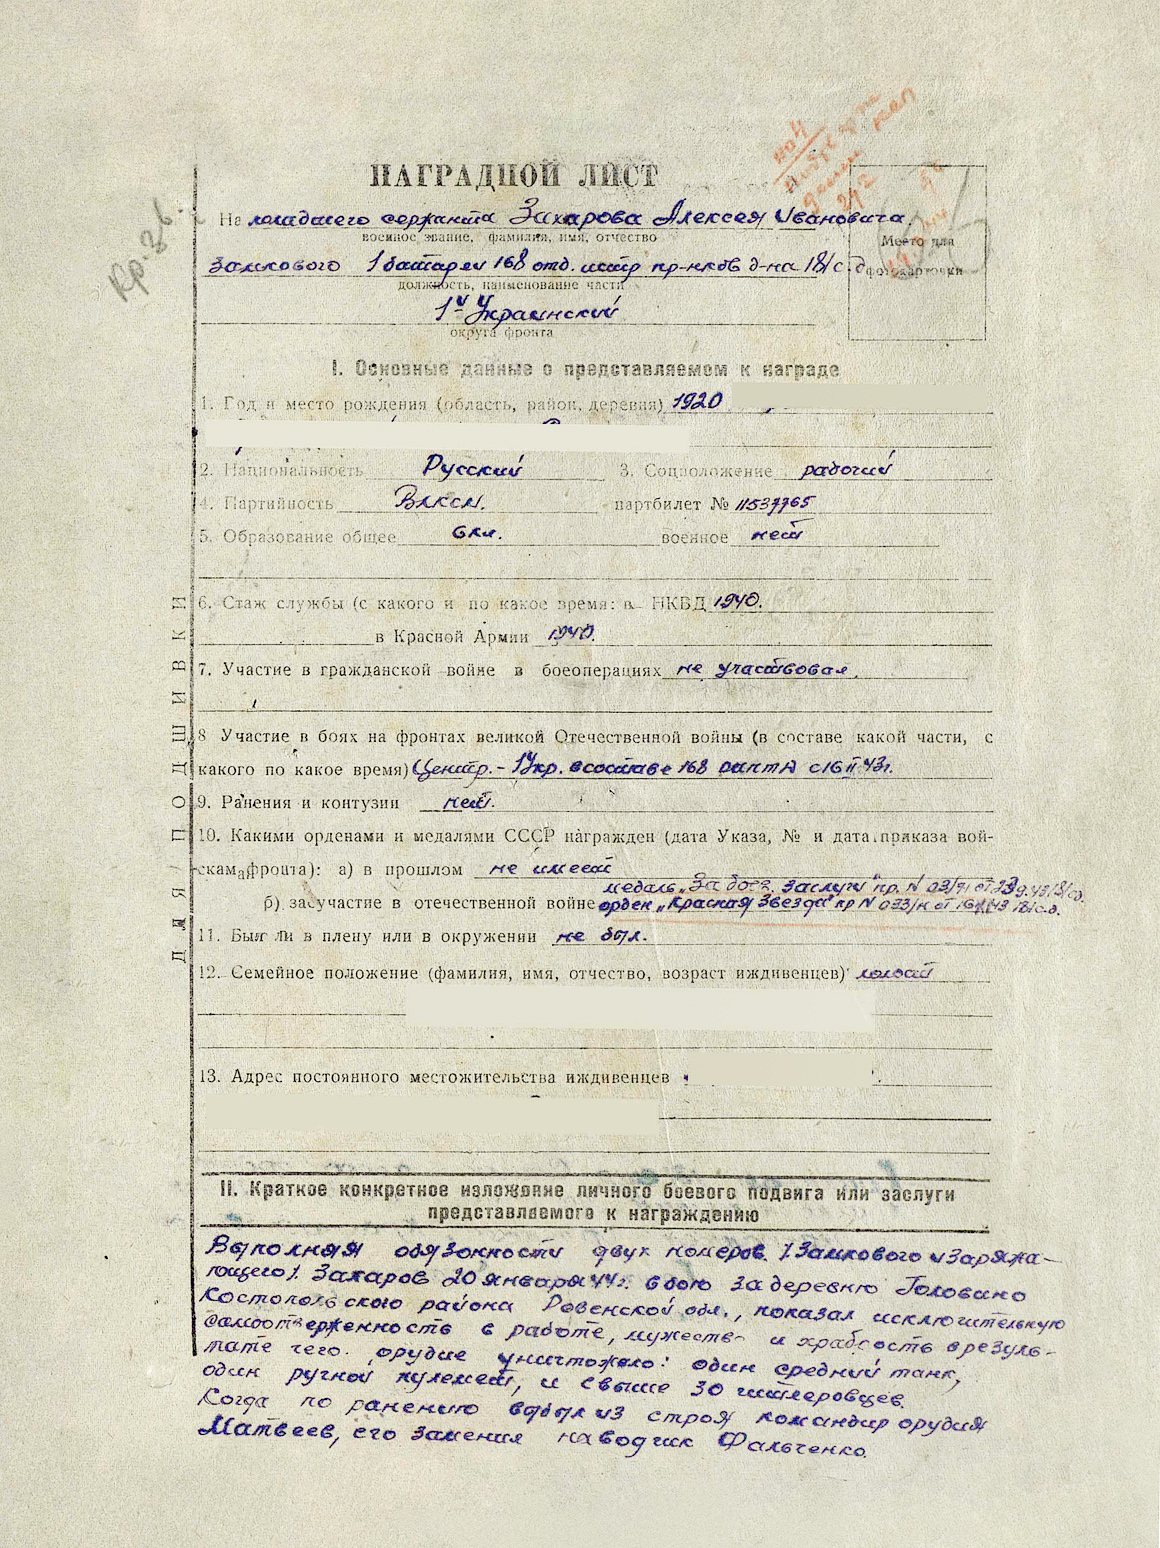 НАГРАДНОЙ ЛИСТ
На младшего сержанта Захарова Алексея Ивановича
военное звание, фамилия, имя, отчество
Место для
фотокарточки
замкового 1 батареи 168 отд. истр пр-нков д-на 181 с.д
должность, наименование части
1й Украинский
округа фронта
Кр. зв.
I. Основные данные о представляемом к награде
1. Год и место рождения (область, район, деревня) 1920
2. Национальность Русский 3. Соцположение рабочий
4. Партийность ВЛКСМ. партбилет № 11537765
5. Образование общее 6 кл. военное нет
6. Стаж службы (с какого и по какое время: в НКВД 1940.
в Красной Армии 1940.
7. Участие в гражданской войне в боеоперациях не участвовал.
8 Участие в боях на фронтах великой Отечественной войны (в составе какой части, с
какого по какое время) Центр. - 1й Укр. в составе 168 оиптд с 16 II 43г.
9. Ранения и контузии нет.
10. Какими орденами и медалями СССР награжден (дата Указа, № и дата приказа вой-
скам фронта): а) в прошлом не имеет
медаль "За боев. заслуги" пр. N 03/н от
б) за участие в отечественной войне орден "Красная Звезда" пр N 033/н от 43 181 с.д.
11. Был ли в плену или в окружении не был.
12. Семейное положение (фамилия, имя, отчество, возраст иждивенцев) холост
13. Адрес постоянного местожительства иждивенцев
ДЛЯ ПОДШИВКИ
II. Краткое конкретное изложение личного боевого подвига или заслуги
представляемого к награждению
Выполняя обязонности двух номеров /Замкового и Заряжа-
ющего/. Захаров 20 января 44г. в бою за деревню Головино
Костопольского района Ровенской обл., показал исключительную
самоотверженность в работе, мужество и храбрость в резуль-
тате чего орудие уничтожело: один средний танк,
один ручной пулемет, и свыше 30 гитлеровцев.
Когда по ранению выбыл из строя командир орудия
Матвеев, его заменил наводчик Фальченко.